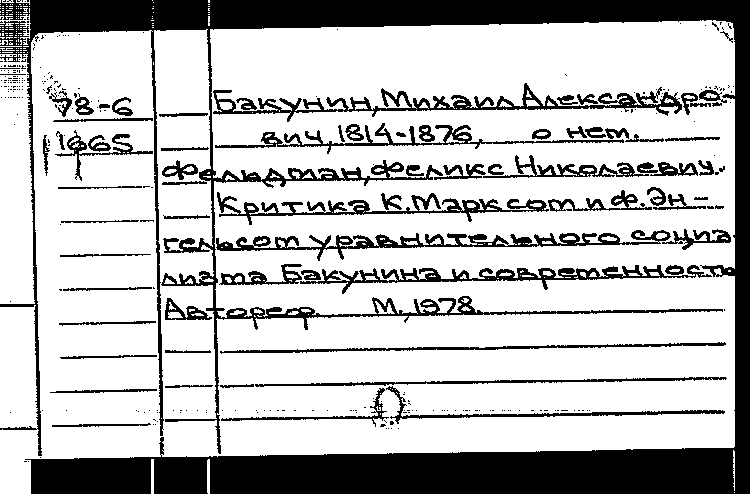 78-6 Бакунин, Михаил Александро-
1665 вич, 1814-1876, о нем.
Фельдман, Феликс Николаевич.
Критика К. Марксом и Ф. Эн-
гельсом уравнительного социа-
лизма Бакунина и современность
Автореф. М., 1978.